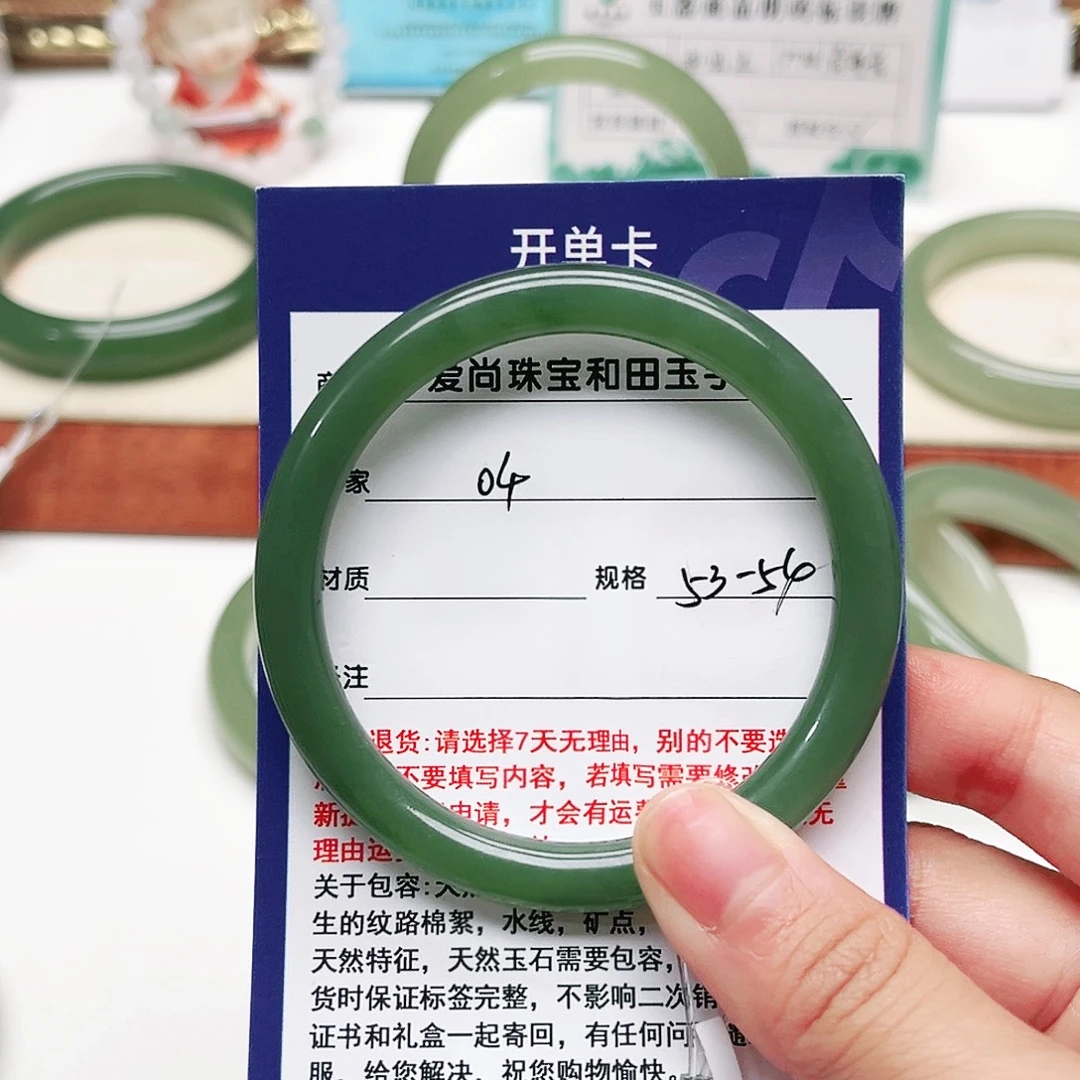 开单卡
爱尚珠宝和田玉
家 04
材质 规格 53-54
注
退货:请选择7天无理由，别的不要选
不要填写内容，若填写需要修改
新 申请，才会有运费 无
理由运
关于包容:天
生的纹路棉絮，水线，矿点，
天然特征，天然玉石需要包容，
货时保证标签完整，不影响二次销
证书和礼盒一起寄回，有任何问
服，给您解决，祝您购物愉快。